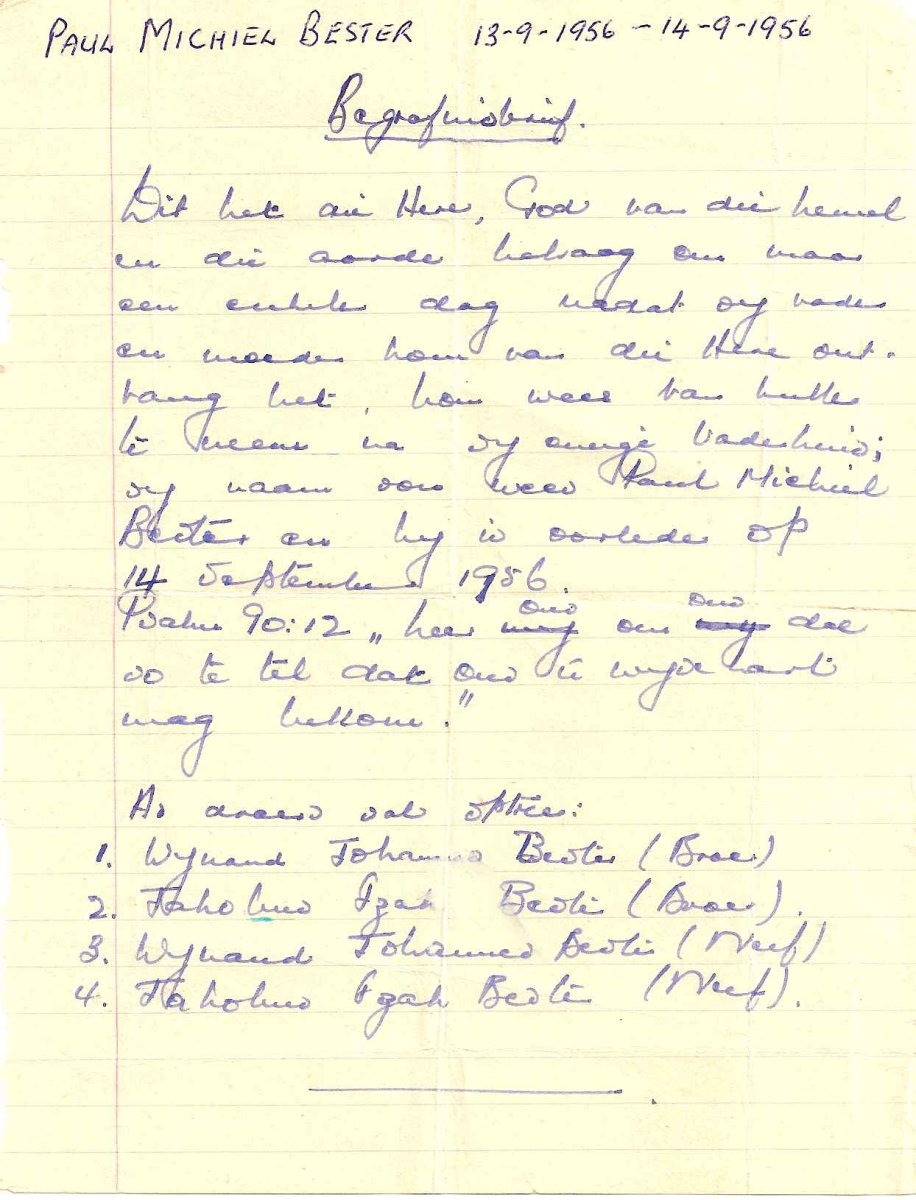 PAUL MICHIEL BESTER 13-9-1956 - 14-9-1956
Begrafnisbrief.
Dit het die Here, God van die hemel
en die aarde behaag om maar
een enkele dag nadat sy vader
en moeder hom van die Here ont-
vang het, hom weer van hulle
te neem na sy ewige Vaderhuis;
sy naam sou wees Paul Michiel
Bester en hy is oorlede op
14 September 1956.
Psalm 90:12 „leer ons ons dae
so te tel dat ons 'n wyse hart
mag bekom."
As draers sal optree:
1. Wynand Johannes Bester (Broer)
2. Jakobus Izak Bester (Broer).
3. Wynand Johannes Bester (Neef)
4. Jakobus Izak Bester (Neef).